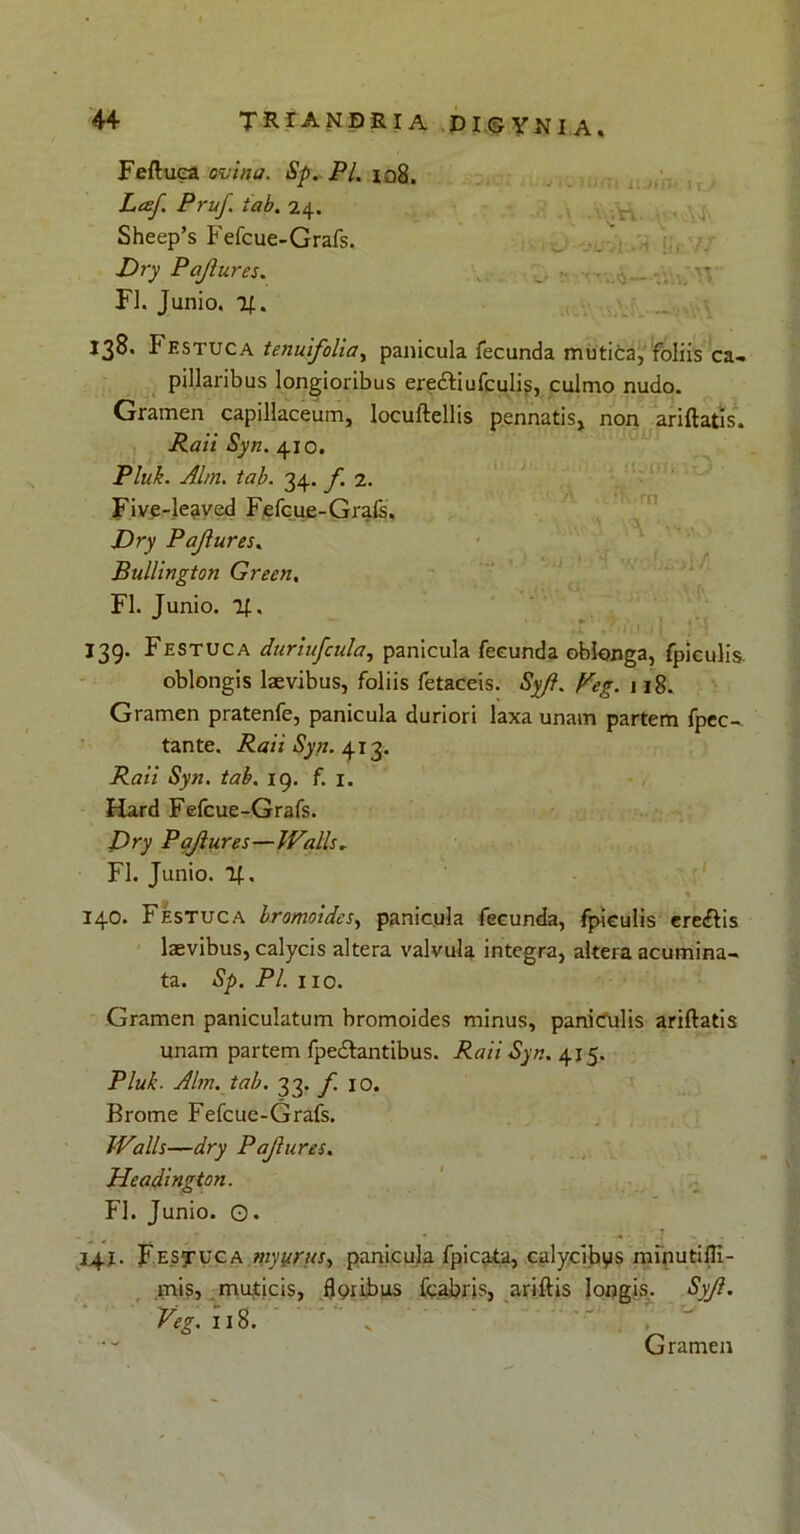 44 TRIANDRIA DIGYNIA.
Feſtuca ovina. Sp. Pl. 108.
Læſ. Pruſ. tab. 24.
Sheep's Feſcue-Graſs.
Dry Paſtures.
Fl. Junio. ♃.
138. FESTUCA tenuifolia, panicula ſecunda mutica, foliis ca-
pillaribus longioribus erectiuſculis, culmo nudo.
Gramen capillaceum, locuſtellis pennatis, non ariſtatis.
Raii Syn. 410.
Pluk. Alm. tab. 34. f. 2.
Five-leaved Feſcue-Graſs.
Dry Paſtures.
Bullington Green.
Fl. Junio. ♃.
139. FESTUCA duriuſcula, panicula ſecunda oblonga, ſpiculis
oblongis lævibus, foliis ſetaceis. Syſt. Veg. 118.
Gramen pratenſe, panicula duriori laxa unam partem ſpec-
tante. Raii Syn. 413.
Raii Syn. tab. 19. f. 1.
Hard Feſcue-Graſs.
Dry Paſtures—Walls.
Fl. Junio. ♃.
140. FESTUCA bromoides, panicula ſecunda, ſpiculis erectis
lævibus, calycis altera valvula integra, altera acumina-
ta. Sp. Pl. 110.
Gramen paniculatum bromoides minus, paniculis ariſtatis
unam partem ſpectantibus. Raii Syn. 415.
Pluk. Alm. tab. 33. f. 10.
Brome Feſcue-Graſs.
Walls—dry Paſtures.
Headington.
Fl. Junio. ☉.
141. FESTUCA myurus, panicula ſpicata, calycibus minutiſſi-
mis, muticis, floribus ſcabris, ariſtis longis. Syſt.
Veg. 118.
Gramen